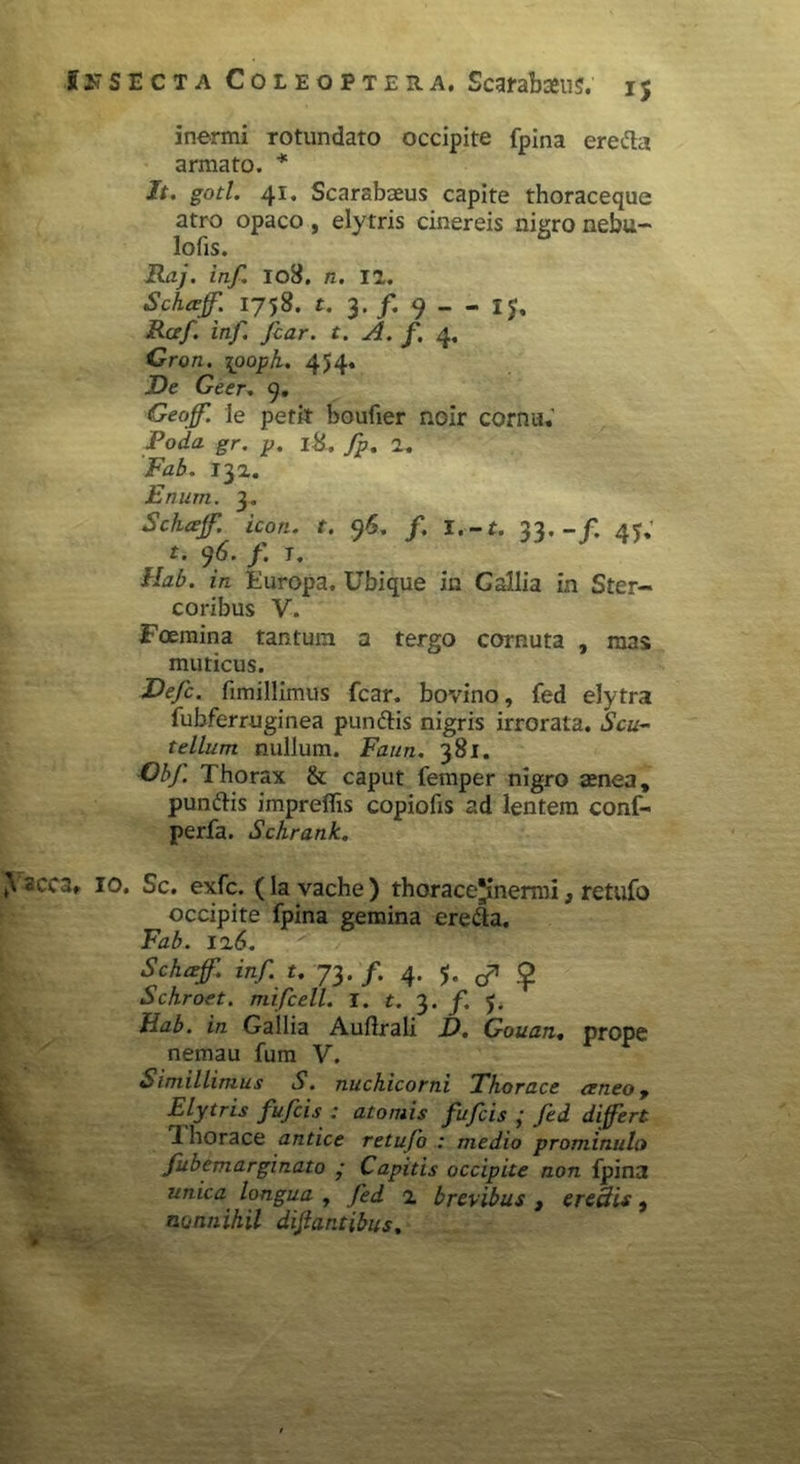 INSECTA COLEOPTERA. Scarabæus. 15
inermi rotundato occipite ſpina erecta
armato. *
It. gotl. 41. Scarabæus capite thoraceque
atro opaco, elytris cinereis nigro nebu-
loſis.
Raj. inſ. 108. n. 12.
Schæff. 1758. t. 3. f. 9 - - 15.
Rœſ. inſ. ſcar. t. A. f. 4.
Gron. zooph. 454.
De Geer. 9.
Geoff. le petit bouſier noir cornu.
Poda gr. p. 18. ſp. 2.
Fab. 132.
Enum. 3.
Schæff. icon. t. 96. f. 1.-t. 33.-f. 45.
t. 96. f. 1.
Hab. in Europa. Ubique in Gallia in Ster-
coribus V.
Fœmina tantum a tergo cornuta, mas
muticus.
Deſc. ſimillimus ſcar. bovino, ſed elytra
ſubferruginea punctis nigris irrorata. Scu-
tellum nullum. Faun. 381.
Obſ. Thorax & caput ſemper nigro ænea,
punctis impreſſis copioſis ad lentem conſ-
perſa. Schrank.
Vacca, 10. Sc. exſc. (la vache) thorace inermi, retuſo
occipite ſpina gemina erecta.
Fab. 126.
Schæff. inſ. t. 73. f. 4. 5. ♂ ♀
Schroet. miſcell. 1. t. 3. f. 5.
Hab. in Gallia Auſtrali D. Gouan. prope
nemau fum V.
Simillimus S. nuchicorni Thorace æneo,
Elytris fuſcis : atomis fuſcis ; ſed differt
Thorace antice retuſo : medio prominulo
ſubemarginato ; Capitis occipite non ſpina
unica longua, ſed 2 brevibus, erectis,
nonnihil diſtantibus.